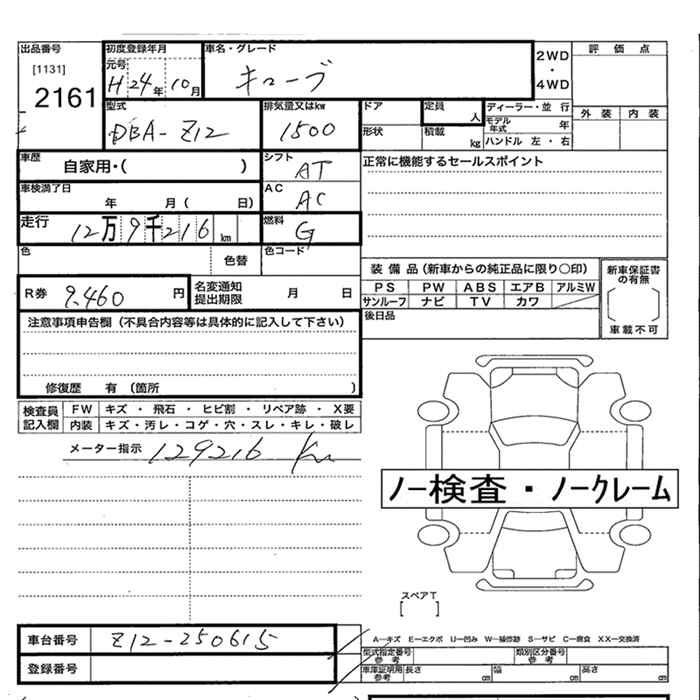 出品番号
[1131]
2161
初度登録年月
元号
H24年10月
車名・グレード
キューブ
2WD
・
4WD
評価点
外装 内装
型式
DBA-Z12
排気量又はkw
1500
ドア
形状
定員
人
積載
kg
ディーラー・並行
モデル年式 年
ハンドル 左・右
車歴
自家用・( )
シフト
AT
正常に機能するセールスポイント
車検満了日
年 月( 日)
AC
AC
走行
12万9千216km
燃料
G
色
色替
色コード
R券
9,460円
名変通知
提出期限
月 日
装備品(新車からの純正品に限り〇印)
PS PW ABS エアB アルミW
サンルーフ ナビ TV カワ
新車保証書
の有無
車載不可
後日品
注意事項申告欄(不具合内容等は具体的に記入して下さい)
修復歴 有(箇所 )
検査員
記入欄
FW キズ・飛石・ヒビ割・リペア跡・X要
内装 キズ・汚レ・コゲ・穴・スレ・キレ・破レ
メーター指示 129216 Km
ノー検査・ノークレーム
スペアT
[ ]
車台番号 Z12-250615
A―キズ E―エクボ U―凹み W―補修跡 S―サビ C―腐食 XX―交換済
登録番号
型式指定番号
参考
類別区分番号
参考
車庫証明用
参考
長さ cm 幅 cm 高さ cm